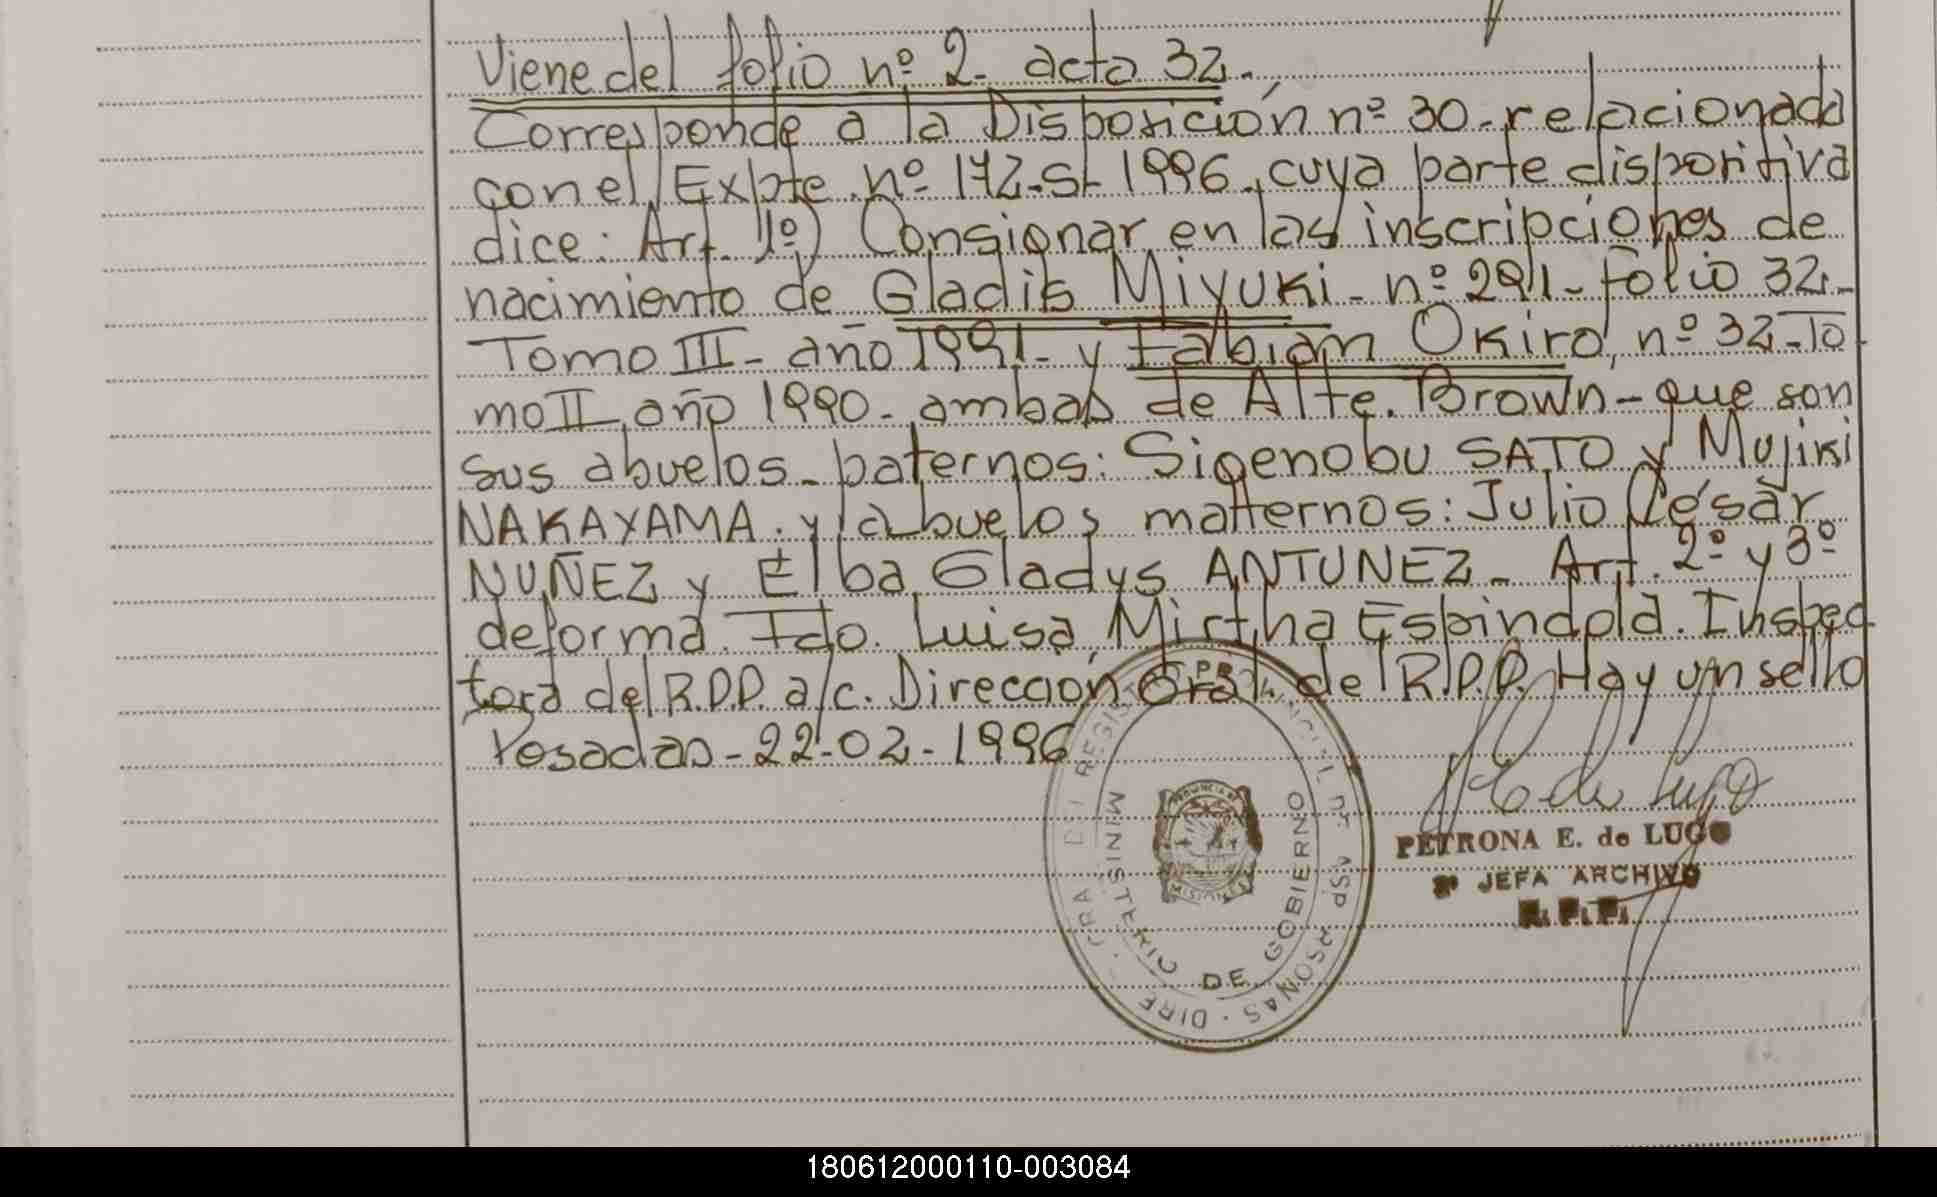 Viene del folio nº 2. acta 32.
Corresponde a la Disposición nº 30. relacionada
con el Expte. nº 172-SL 1996., cuya parte dispositiva
dice: Art. 1º) Consignar en las inscripciones de
nacimiento de Gladis Miyuki - nº 291 - folio 32.-
Tomo III - año 1991 - y Fabian Okiro, nº 32 - To
mo II año 1990 - ambas de Alte. Brown - que son
sus abuelos - paternos: Sigenobu SATO y Mujiki
NAKAYAMA. y abuelos matternos: Julio César
NUÑEZ y Elba Gladys ANTUNEZ - Art. 2º y 3º
de forma. Fdo. Luisa Mirtha Espindola. Inspec
tora del R.P.P. a/c. Dirección Gral. del R.P.P. Hay un sello
Posadas - 22-02-1996
PROVINCIA DE
MISIONES
MINISTERIO DE GOBIERNO
PETRONA E. de LUGO
JEFA ARCHIVO
R. P. P.
180612000110-003084